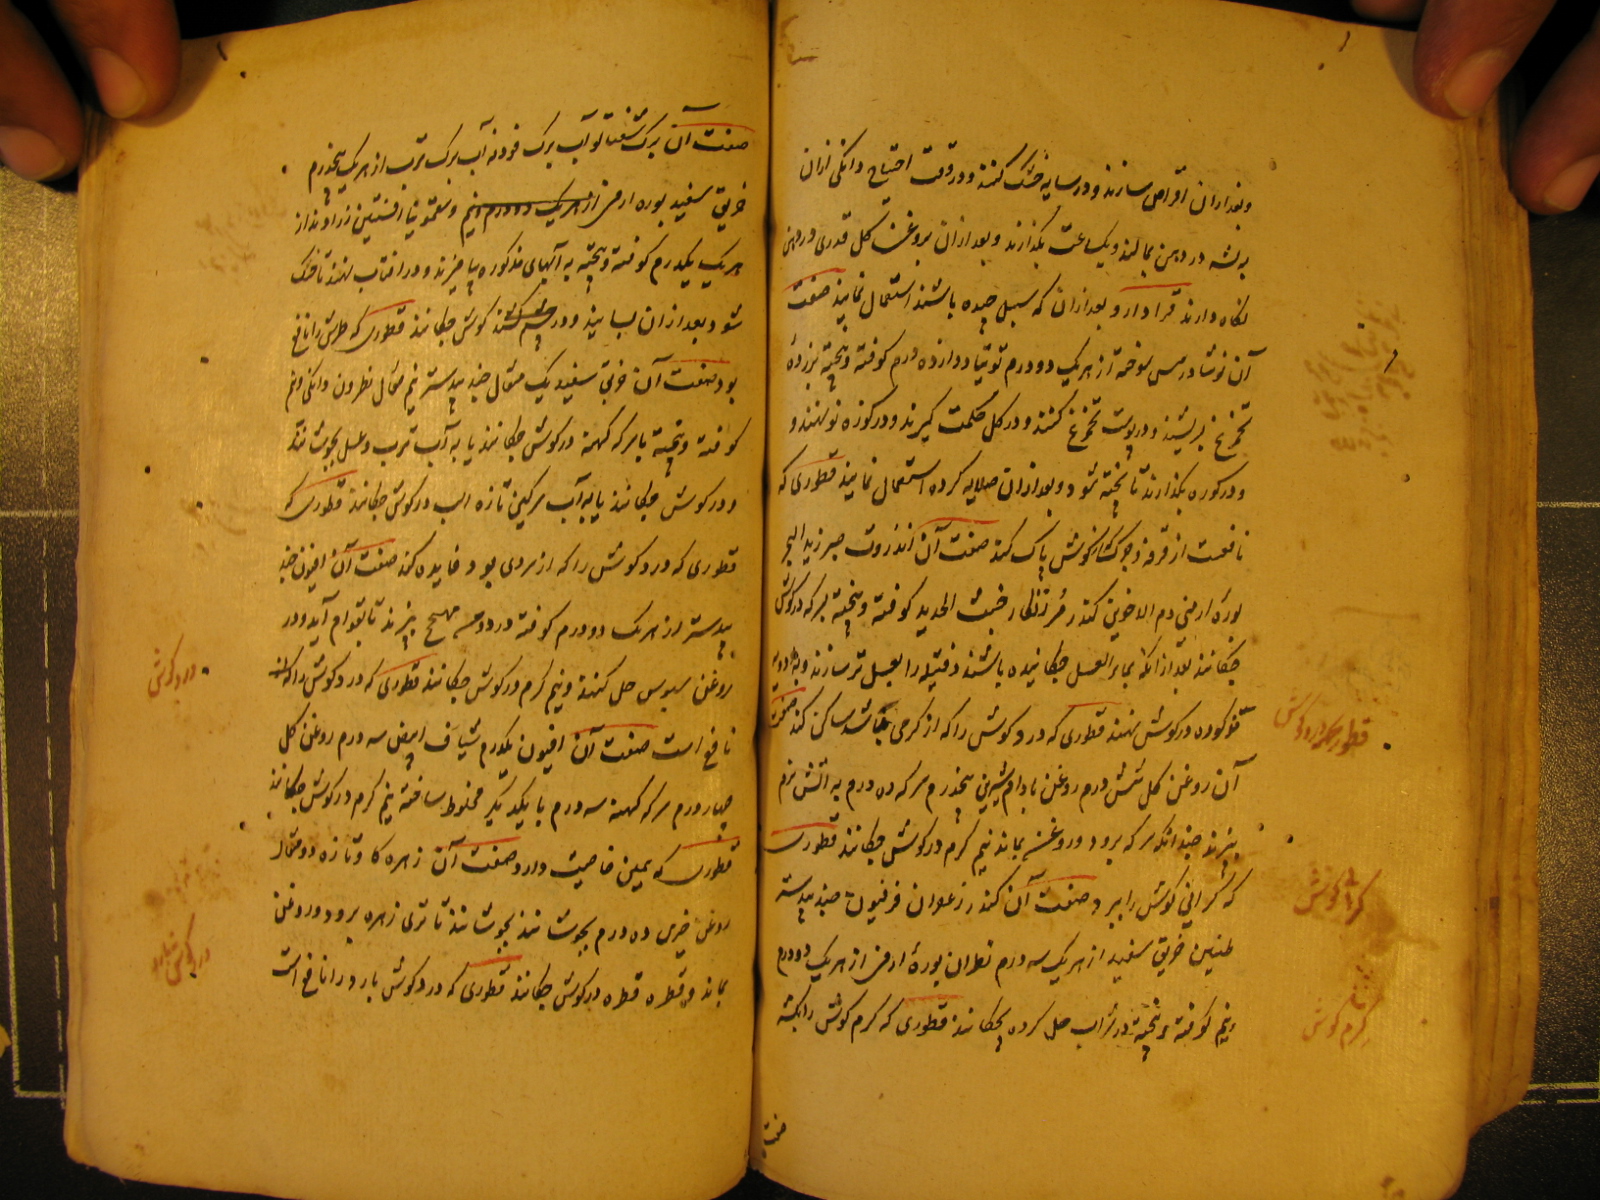 و بعد از ان اقراص سازند و در سایه خشک کنند و در وقت احتیاج دانکی ازان
بریشه در دهن بمالند و یک ساعت بگذارند و بعد ازان بروغن کل قدری در دهن
نکاه دارند قرادار و بعد ازان که سبل چیده باشند استعمال نمایند صفت
آن نوشادر مس سوخته از هر یک دو درم توتیا دوازده درم کوفته و پخته بزرده
تخم مرغ بریشند و در پوست تخم مرغ کنند و در کل حکمت کیرند و در کوزه نو نهند و
و در کوره بگذارند تا پخته شود و بعد ازان صلایه کرده استعمال نمایند قطوری که
نافعست از قرحه و چرک کوش پاک کند صفت آن انذروت صبر زبد البحر
بوره ارمنی دم الاخوین کندر مر زنکار خبث الحدید کوفته و پخته بسرکه در کوش
چکانند بعد از انکه بماء العسل چکانیده باشند و فتیله را بعسل تر سازند و به ادویه
آلوده در کوش نهند قطوری که درد کوش را که از کرمی باشد ساکن کند صفت
آن روغن کل شش درم روغن بادام شیرین پنجدرم سرکه ده درم به آتش نرم
بپزند چندانکه سرکه برود و روغن بماند نیم کرم در کوش چکانند قطوری
که کرانی کوش را ببرد صفت آن کندر زعفران فرفیون جند بیدستر
خربق سفید از هر یک سه درم بوره ارمنی از هر یک دو درم
و نیم کوفته و پخته در شراب حل کرده بچکانند قطوری که کرم کوش را بکشد
قطور درد کوش
کرانی کوش
کرم کوش
صفت
صفت آن برک شفتالو آب برک فودنه آب برک ترب از هر یک پنجدرم
خربق سفید بوره ارمنی از هر یک دو درم و نیم و سقمونیا افسنتین زراوند از
هر یک یکدرم کوفته و پخته به آبهای مذکوره بیامیزند و در آفتاب نهند تا خشک
شود و بعد ازان بسایند و در کوش چکانند قطوری که طرش را نافع
بود صفت آن خربق سفید یک مثقال جند بیدستر نیم مثقال نطرون دانکی و نیم
کوفته و پخته با سرکه کهنه در کوش چکانند یا به آب ترب و عسل بجوشانند
و در کوش چکانند یا به آب سرکین تازه اسب در کوش چکانند قطوری که
قطوری که درد کوش را که از سردی بود فایده کند صفت آن افیون جند
بیدستر از هر یک دو درم کوفته در دوشاب بپزند تا بقوام آید و در
روغن سوسن حل کنند و نیم کرم در کوش چکانند قطوری که درد کوش را
نافع است صفت آن افیون یکدرم شیاف ابیض سه درم روغن کل
چهار درم سرکه کهنه سه درم با یکدیکر مخلوط ساخته نیم کرم در کوش چکانند
قطوری که همین خاصیت دارد صفت آن زهره کاو تازه دو مثقال
روغن خیری ده درم بجوشانند بجوشانند تا تری زهره برود و روغن
بماند و قطره قطره در کوش چکانند قطوری که درد کوش بارد را نافع است
درد کوش
درد کوش بارد